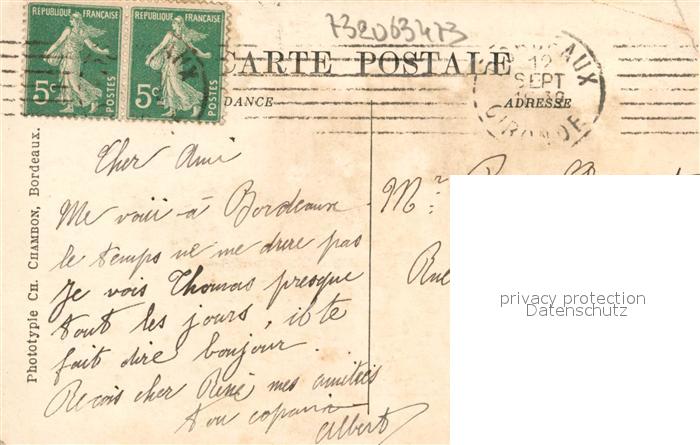 732063473
REPUBLIQUE FRANÇAISE
5c POSTES
REPUBLIQUE FRANÇAISE
5c POSTES
CARTE POSTALE
BORDEAUX
12
SEPT
GIRONDE
DANCE
ADRESSE
Cher Ami
Me voiii à Bordeaux
le temps ne me dure pas
Je vois Thomas presque
tout les jours, il te
fait dire bonjour
Recois cher René mes amitiés
ton copain
Albert
Mr
Rue
Phototypie CH. CHAMBON, Bordeaux.
privacy protection
Datenschutz